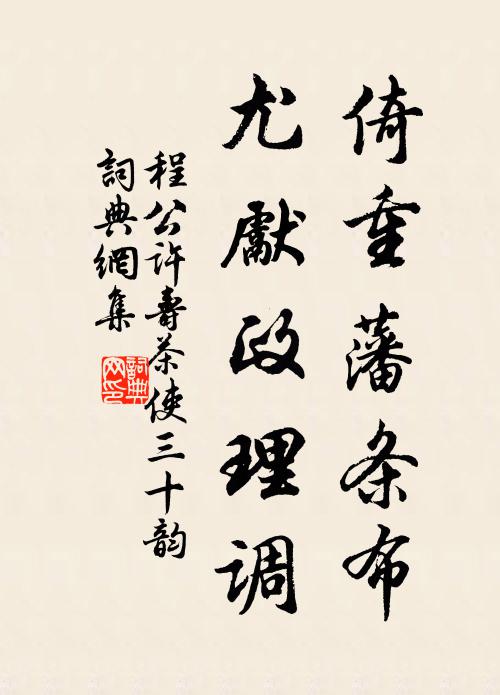 倚重藩条布
尤獻政理调
程公许壽茶使三十韵
詞典網集
詞典
网印